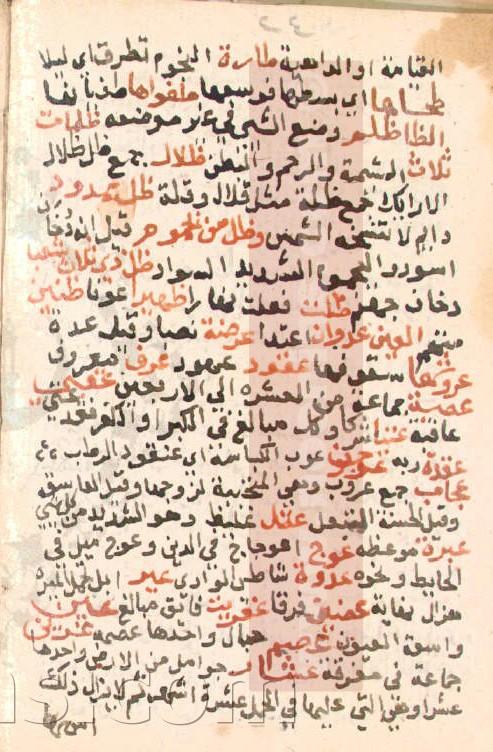 القيامة او الداهية طارة النجوم تطرق اي ليلا
طحاها اي بسطها فوسعها طفقوا
الظا ظلم وضع الشي في غير موضعه ظلمات
ثلاث المشيمة والرحم والبطن ظلال جمع ظل ظلال
الارايك جمع ظلة مثل قلال وقلة ظل ممدود
دايم لا تنسخه الشمس وظل من يحموم قيل انه دخان
اسود واليحموم الشديد السواد ظل ذي ثلاث شعب
دخان جهنم ظلت فعلت نهارا ظهير عونا ظنين
متهم العين عدوان اعتدا عرضة نصبا وقيل عدة
عروشها سقوفها عقود عهود عرف معروف
عصبة جماعة من العشرة الى الاربعين
عاقبة مبالغ في الكبر او الكفر
عقدة عوب الكباسة اي عنقود الرطب
جمع عروب وهي المتحببة لزوجها وقيل العاشق
وقيل الحسنة التبعل عتل غليظ وهو الشديد من كل شي
عبرة موعظة عوج اعوجاج في الدين وعوج ميل في
الحايط ونحوه عدوة شاطي الوادي عير ابل تحمل الميرة
هزال نهاية عضين فرقا عفريت فايق مبالغ عين
واسعة العيون عصيهم حبال واحدها عصى عزين
جماعة في تفرقة عشار حوامل من الابل واحدها
عشرا وهي التي عليها في الحمل عشرة اشهر ثم لا يزال ذلك
اسمها